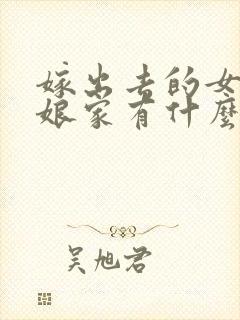 嫁出去的女
娘家有什麼
吴旭君